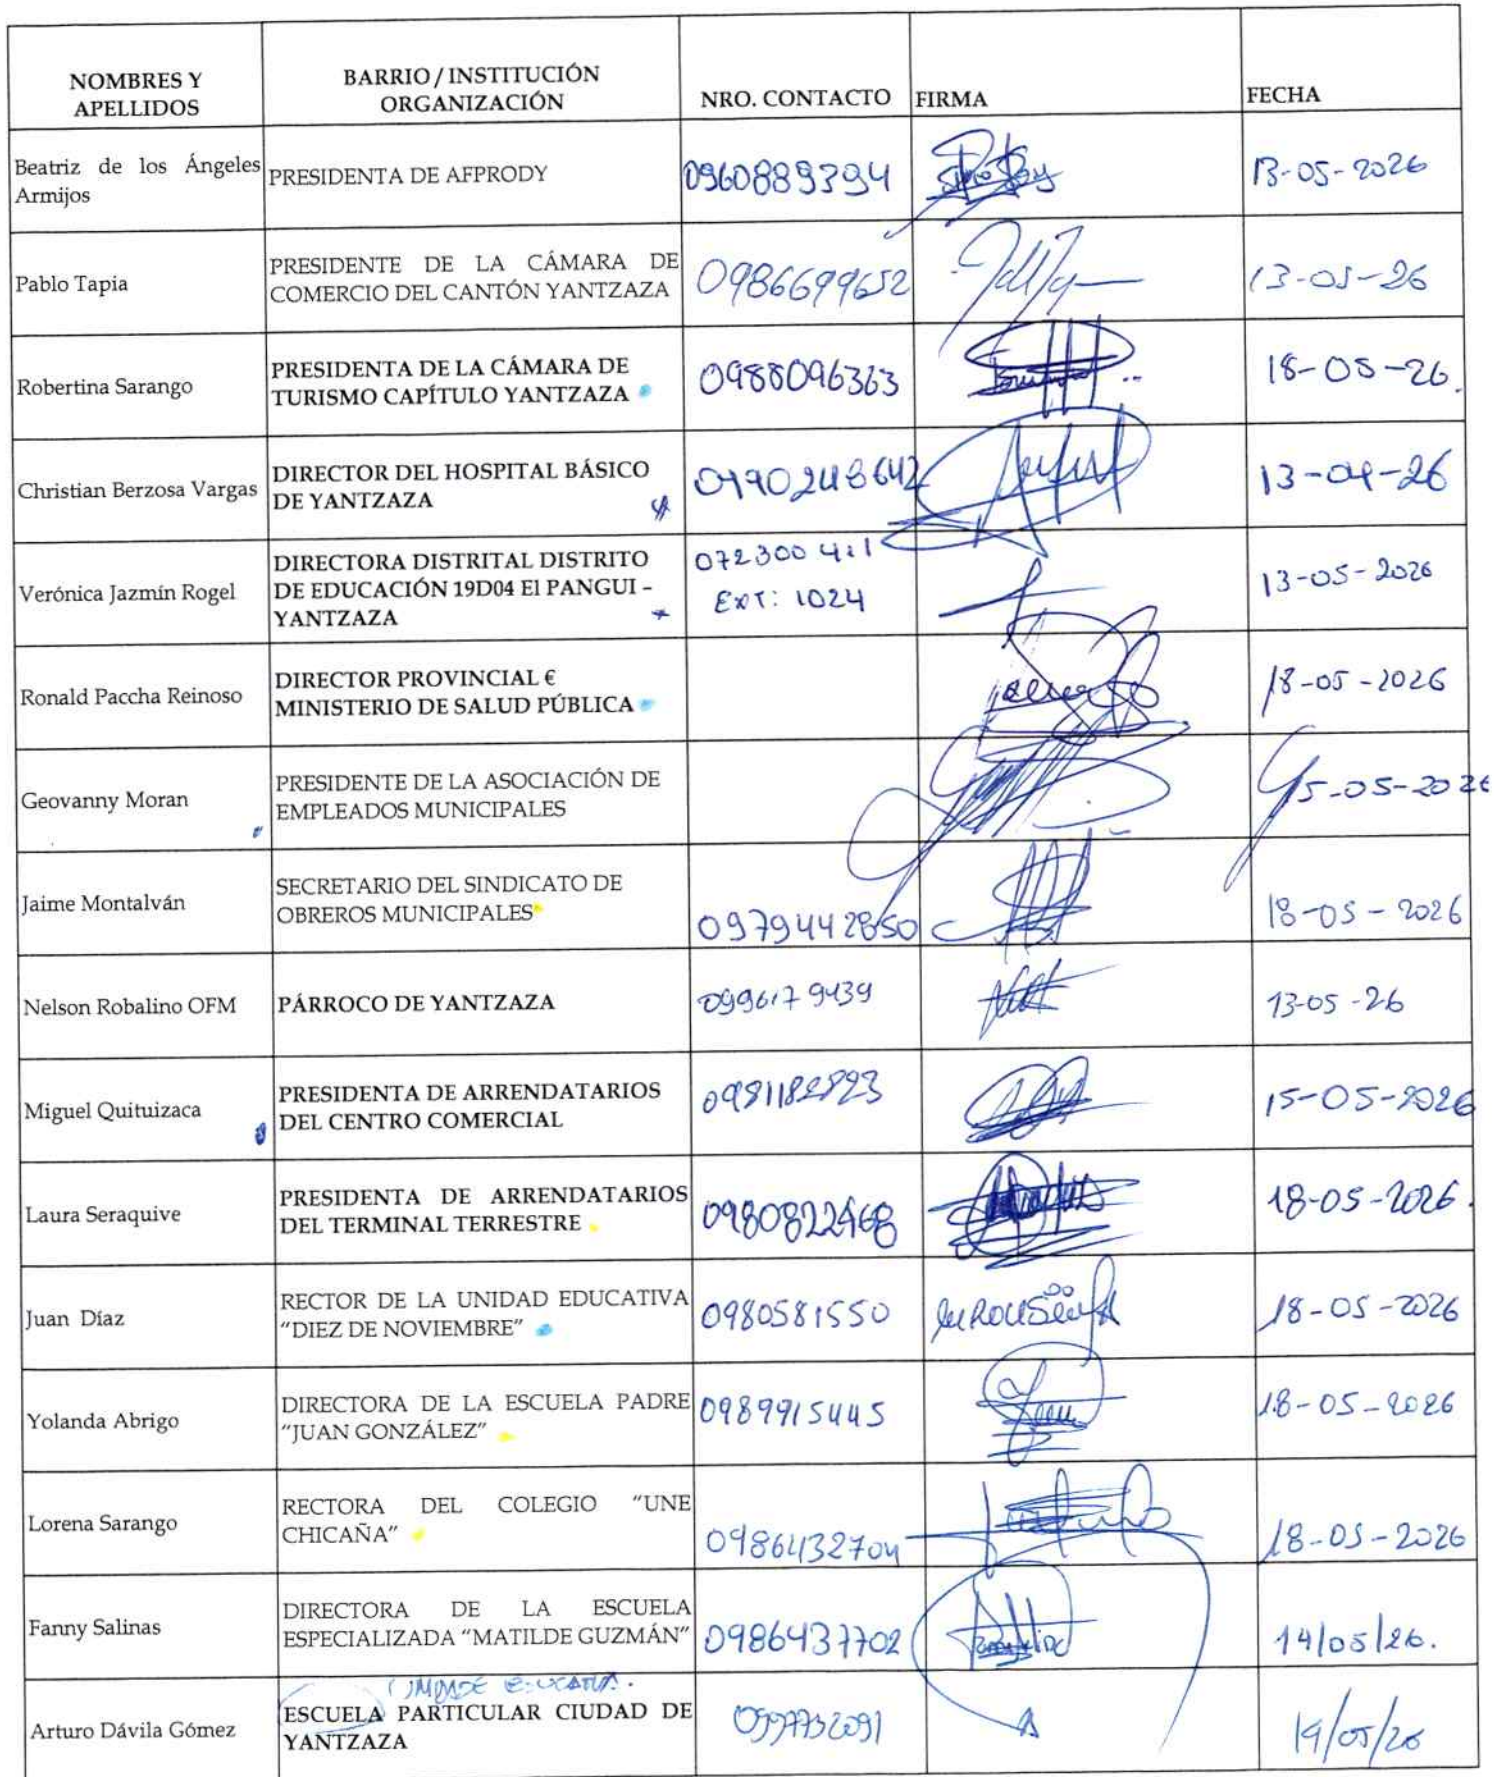 NOMBRES Y APELLIDOS
BARRIO / INSTITUCIÓN ORGANIZACIÓN
NRO. CONTACTO
FIRMA
FECHA
Beatriz de los Ángeles Armijos
PRESIDENTA DE AFPRODY
0960889394
13-05-2026
Pablo Tapia
PRESIDENTE DE LA CÁMARA DE COMERCIO DEL CANTÓN YANTZAZA
0986699652
13-05-26
Robertina Sarango
PRESIDENTA DE LA CÁMARA DE TURISMO CAPÍTULO YANTZAZA
0988096363
18-05-26.
Christian Berzosa Vargas
DIRECTOR DEL HOSPITAL BÁSICO DE YANTZAZA
13-04-26
Verónica Jazmín Rogel
DIRECTORA DISTRITAL DISTRITO DE EDUCACIÓN 19D04 El PANGUI – YANTZAZA
EXT: 1024
13-05-2026
Ronald Paccha Reinoso
DIRECTOR PROVINCIAL € MINISTERIO DE SALUD PÚBLICA
18-05-2026
Geovanny Moran
PRESIDENTE DE LA ASOCIACIÓN DE EMPLEADOS MUNICIPALES
15-05-2026
Jaime Montalván
SECRETARIO DEL SINDICATO DE OBREROS MUNICIPALES
0979442850
18-05-2026
Nelson Robalino OFM
PÁRROCO DE YANTZAZA
0996179439
13-05-26
Miguel Quituizaca
PRESIDENTA DE ARRENDATARIOS DEL CENTRO COMERCIAL
15-05-2026
Laura Seraquive
PRESIDENTA DE ARRENDATARIOS DEL TERMINAL TERRESTRE
18-05-2026.
Juan Díaz
RECTOR DE LA UNIDAD EDUCATIVA "DIEZ DE NOVIEMBRE"
0980581550
18-05-2026
Yolanda Abrigo
DIRECTORA DE LA ESCUELA PADRE "JUAN GONZÁLEZ"
0989915445
18-05-2026
Lorena Sarango
RECTORA DEL COLEGIO "UNE CHICAÑA"
0986432704
18-05-2026
Fanny Salinas
DIRECTORA DE LA ESCUELA ESPECIALIZADA "MATILDE GUZMÁN"
0986437702
14/05/26.
Arturo Dávila Gómez
UNIDAD EDUCATIVA.
ESCUELA PARTICULAR CIUDAD DE YANTZAZA
19/05/26